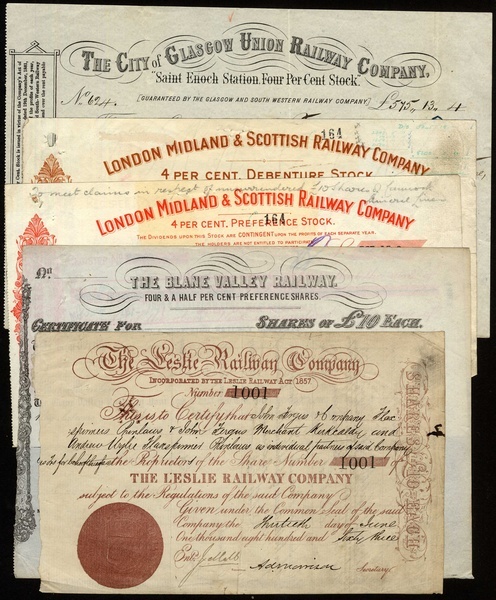 THE CITY OF GLASGOW UNION RAILWAY COMPANY,
"Saint Enoch Station, Four Per Cent Stock."
No. 624. [GUARANTEED BY THE GLASGOW AND SOUTH WESTERN RAILWAY COMPANY] £575,,13,,4
164
LONDON MIDLAND & SCOTTISH RAILWAY COMPANY
4 PER CENT. DEBENTURE STOCK
To meet claims in respect of unsurrendered £10 Shares
LONDON MIDLAND & SCOTTISH RAILWAY COMPANY
4 PER CENT. PREFERENCE STOCK.
164
THE DIVIDENDS UPON THIS STOCK ARE CONTINGENT UPON THE PROFITS OF EACH SEPARATE YEAR.
THE HOLDERS ARE NOT ENTITLED TO PARTICIPATE
No.
THE BLANE VALLEY RAILWAY.
FOUR & A HALF PER CENT PREFERENCE SHARES.
CERTIFICATE FOR SHARES OF £10 EACH.
The Leslie Railway Company
INCORPORATED BY THE LESLIE RAILWAY ACT 1857.
Number 1001
This is to Certify that John Fergus & Company Flax
Spinners Prinlaws & John Fergus Merchant Kirkcaldy and
Andrew Wylie Prinlaws as individual partners of said Company
the Proprietors of the Share Number 1001 of
THE LESLIE RAILWAY COMPANY
subject to the Regulations of the said Company
Given under the Common Seal of the said
Company, the Thirtieth day of June
One thousand eight hundred and Sixty three
Entd.
Ad Morrison
Secretary